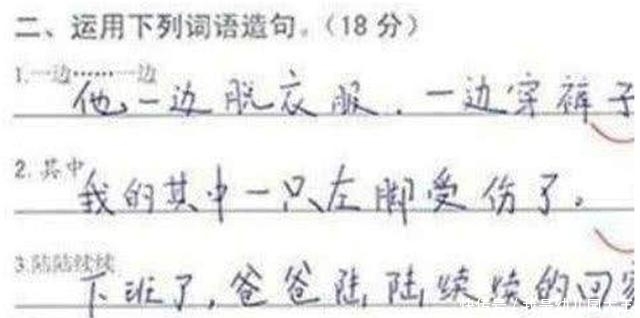 二、运用下列词语造句。(18分)
1.一边……一边
他一边脱衣服.一边穿裤子
2.其中
我的其中一只左脚受伤了。
3.陆陆续续
下班了,爸爸陆陆续续的回家